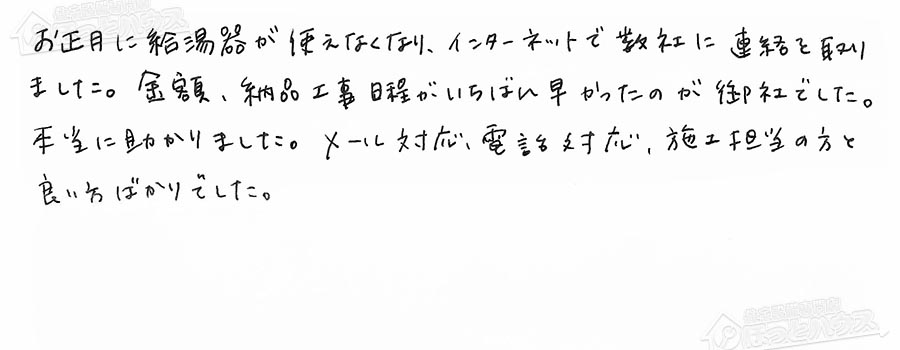 お正月に給湯器が使えなくなり、インターネットで数社に連絡を取り
ました。金額、納品工事日程がいちばん早かったのが御社でした。
本当に助かりました。メール対応、電話対応、施工担当の方と
良い方ばかりでした。
ほっとハウス